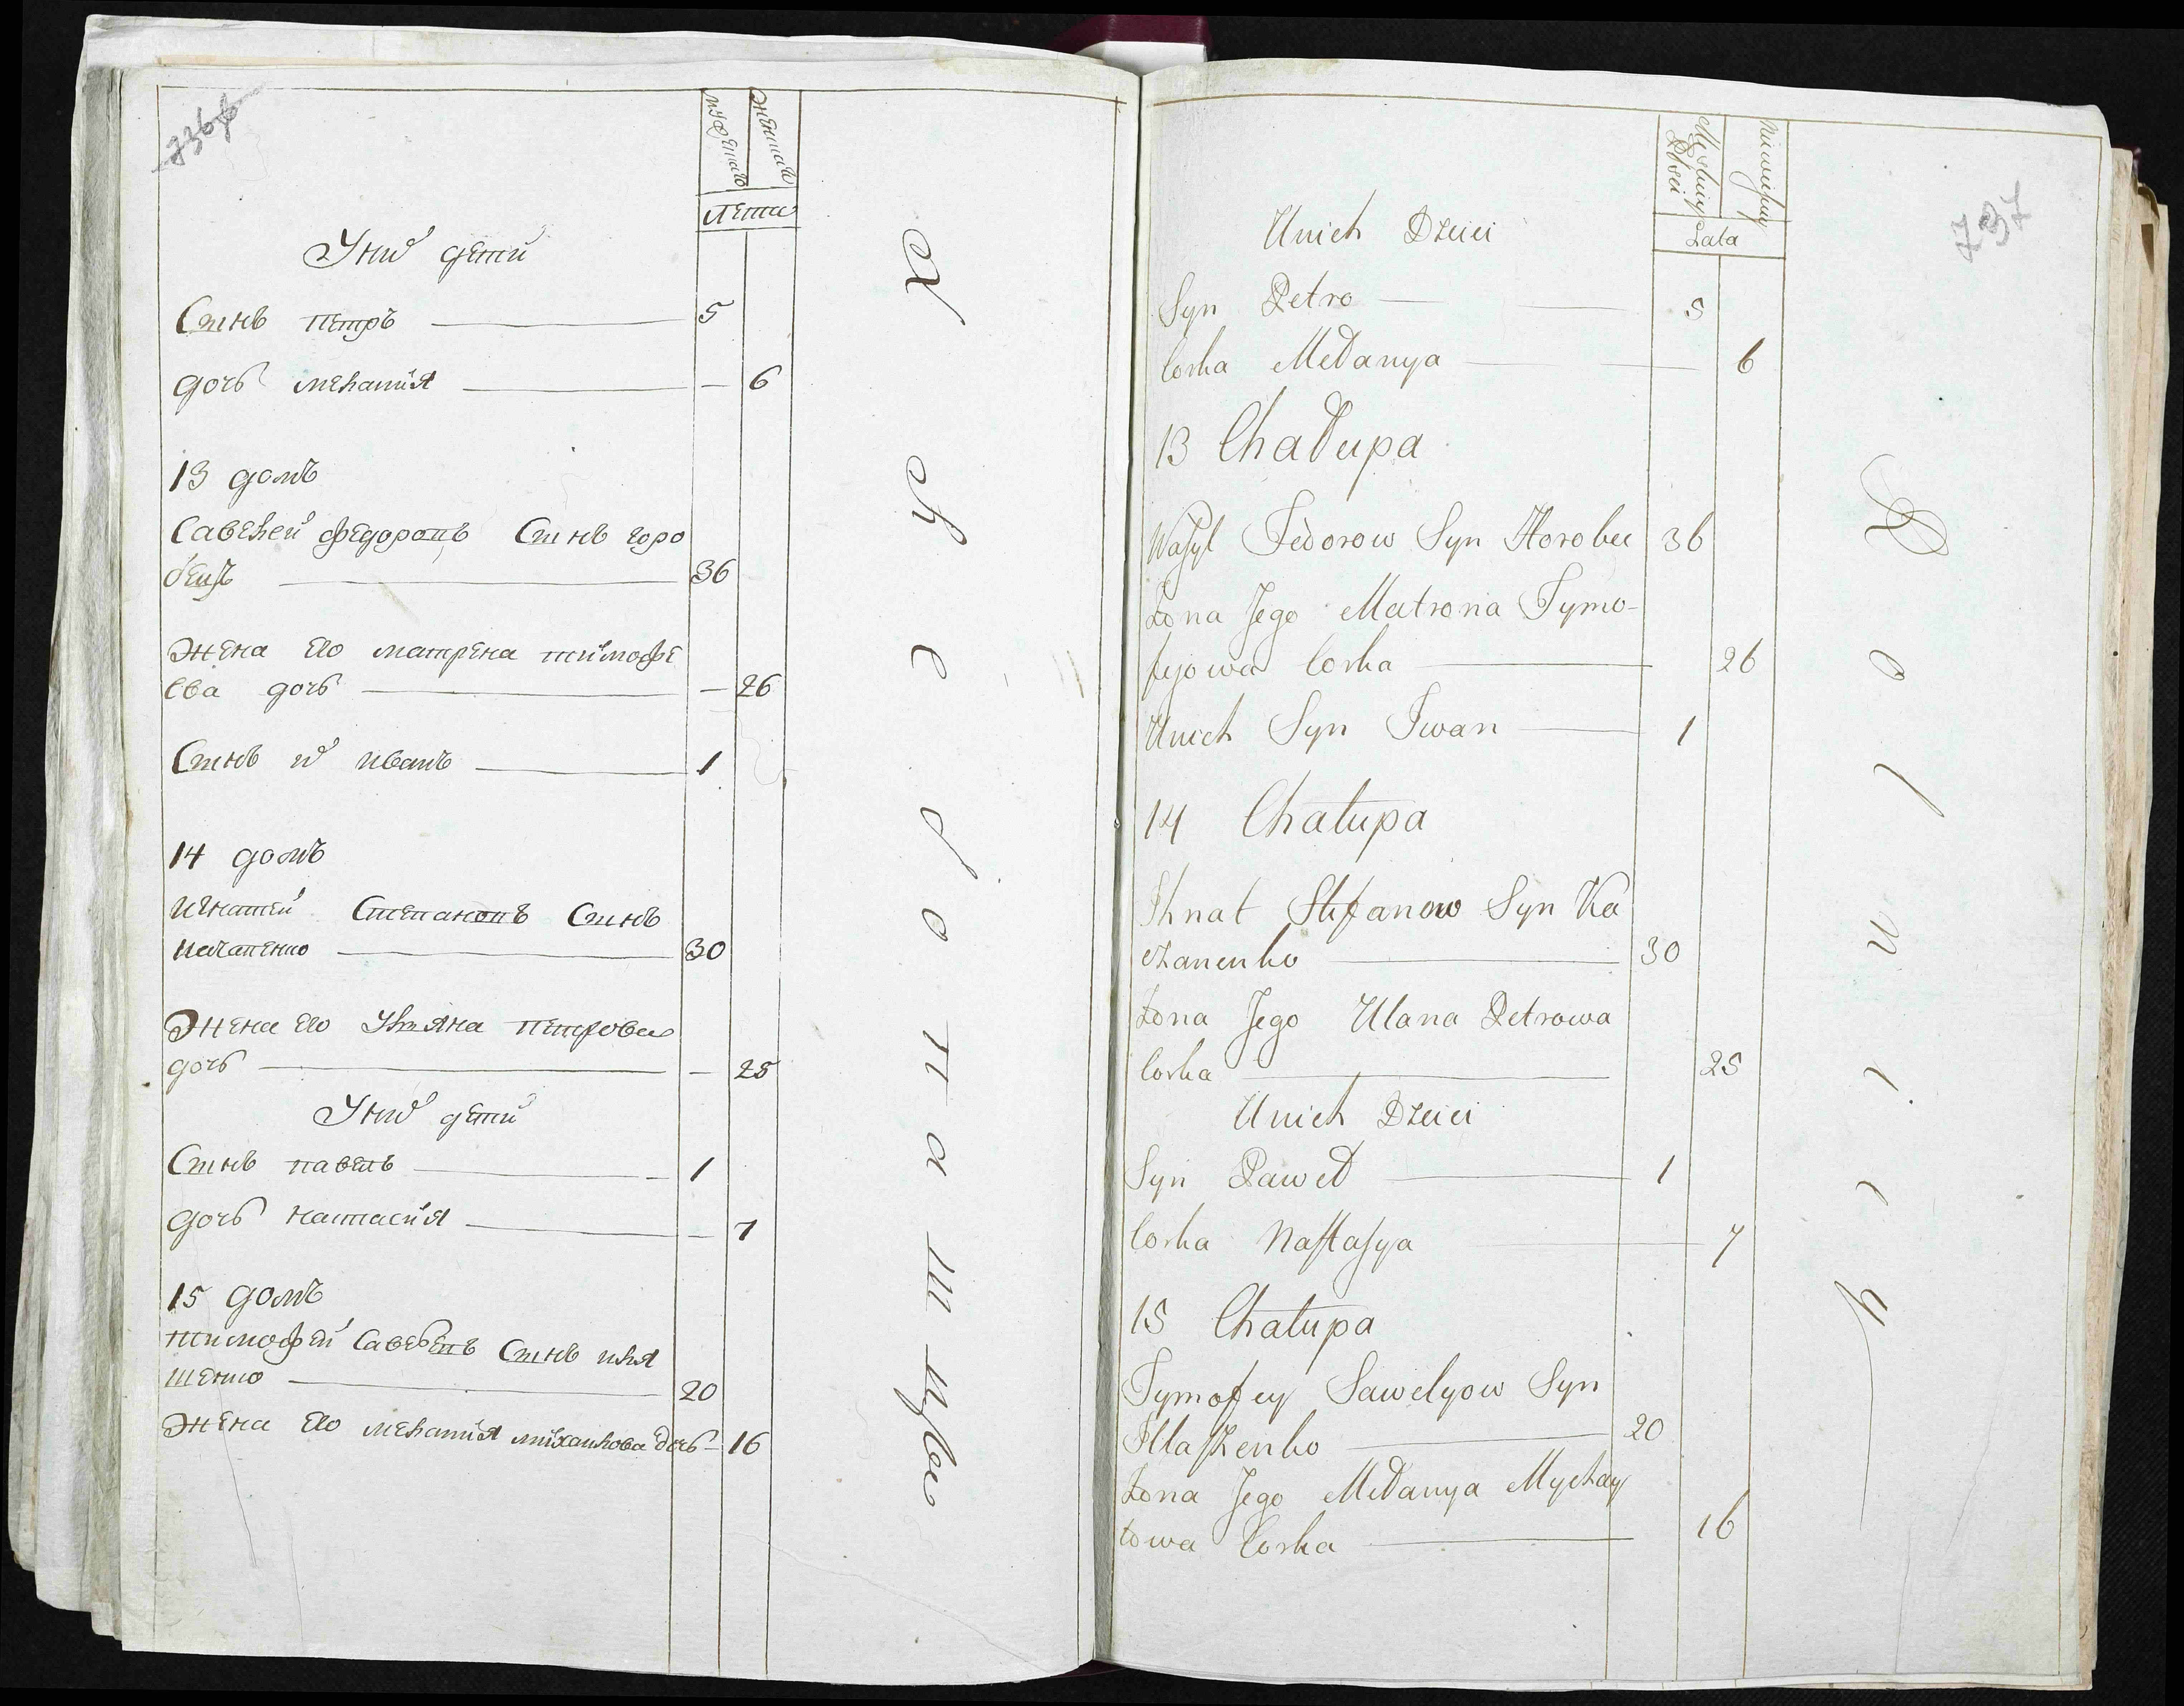 736б
мужеска
женска
лета
У них дети
Сынъ петръ 5
дочь мелания — 6
13 домъ
Савелей федоровъ Сынъ горо
бецъ 36
Жена Ево матрена тимофе
ева дочь — 26
Сынъ их иванъ 1
14 домъ
игнатей Степановъ Сынъ
качаненко 30
Жена Ево Ульяна петрова
дочь — 25
У них дети
Сынъ павелъ 1
дочь настасия — 7
15 домъ
тимофей Савельевъ Сынъ иля
шенко 20
Жена Ево мелания михайлова дочь — 16
737
Męskiey Płci
Niewieściey
Lata
Unich Dzieci
Syn Petro 5
Corka Mełanya 6
13 Chałupa
Wasyl Fedorow Syn Horobec 36
Żona Jego Matrona Tymo-
fejowa Corka 26
Unich Syn Iwan 1
14 Chałupa
Ihnat Stefanow Syn Ka
czanenko 30
Żona Jego Ulana Petrowa
Corka 25
Unich Dzieci
Syn Paweł 1
Corka Nastasya 7
15 Chałupa
Tymofey Sawelyow Syn
Illaszenko 20
Żona Jego Mełanya Mychay
łowa Corka 16